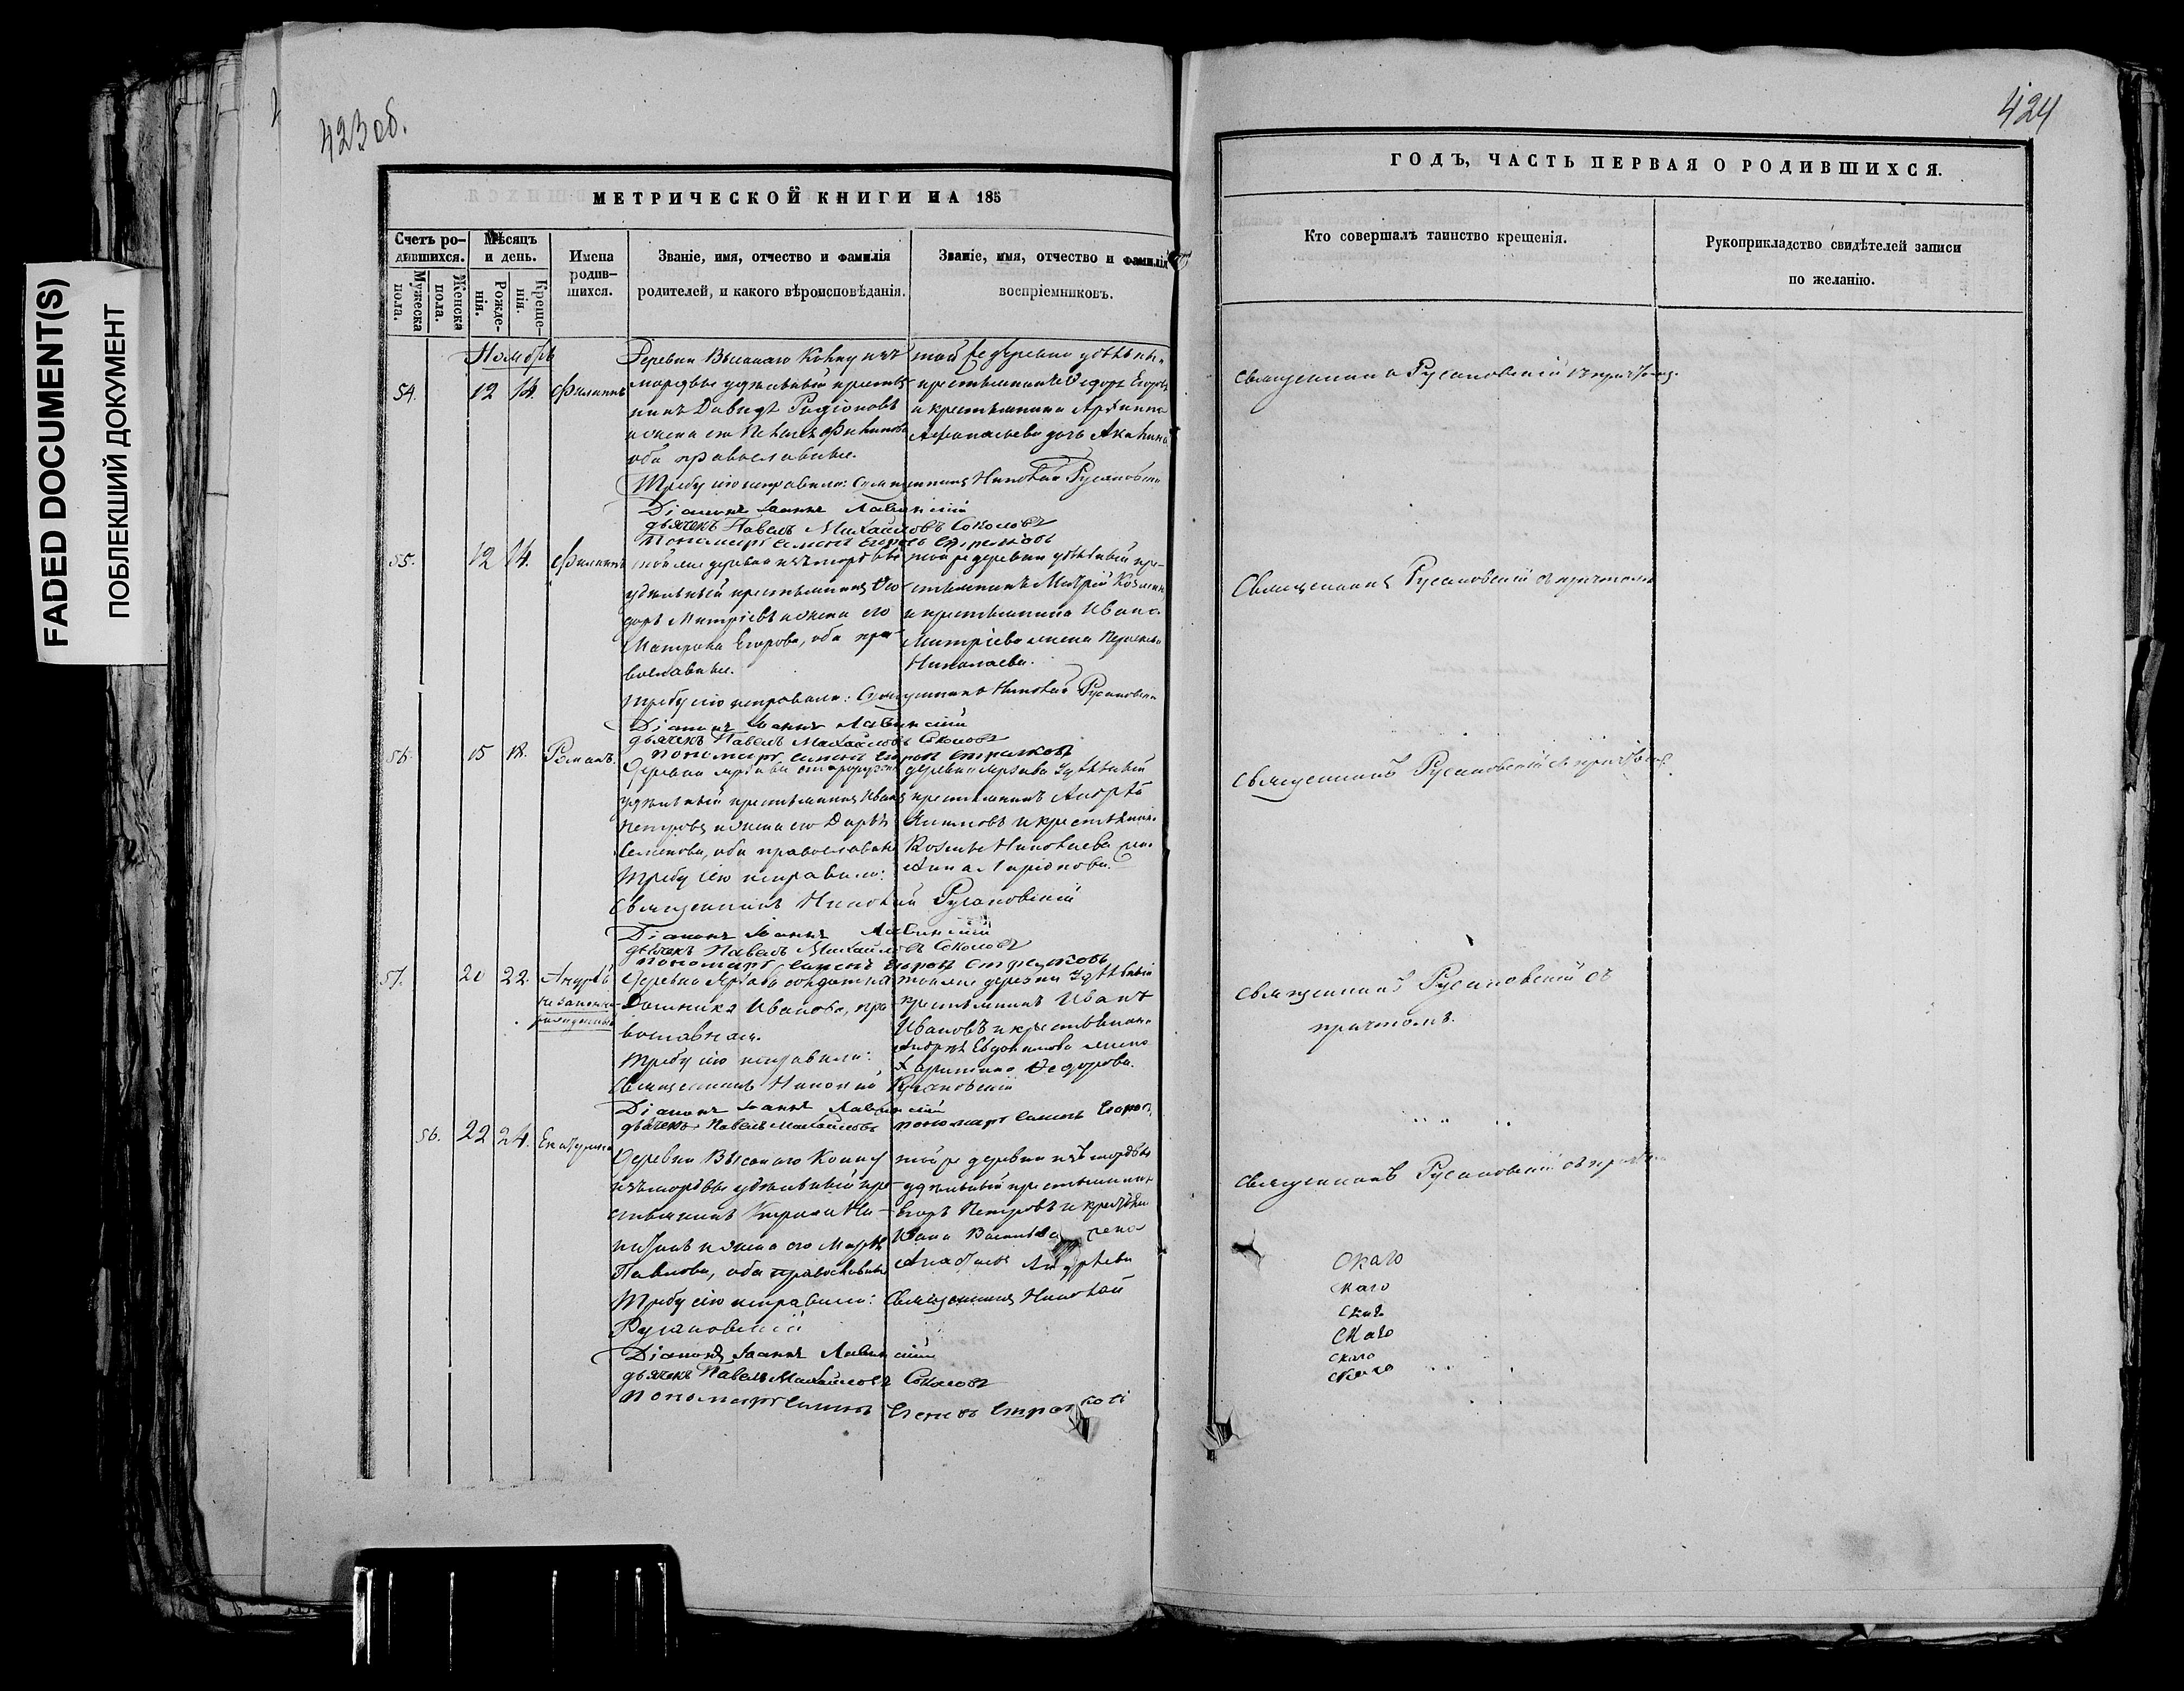 FADED DOCUMENT(S)
ПОБЛЕКШИЙ ДОКУМЕНТ
423 об.
МЕТРИЧЕСКОЙ КНИГИ НА 185
Счетъ ро-
дившихся.
Мужеска
пола.
Женска
пола.
Мѣсяцъ
и день.
Рожде-
нія.
Креще-
нія.
Имена
родив-
шихся.
Званіе, имя, отчество и фамилія
родителей, и какого вѣроисповѣданія.
Званіе, имя, отчество и фамилія
воспріемниковъ.
Ноябрь
54. 12 14. Филиппъ
Деревни Высокаго Колку изъ
мордвы удѣльный крестья
нинъ Давидъ Родіоновъ
и жена его
оба православные.
той же деревни удѣльный
крестьянинъ Ѳедоръ Егоровъ
и крестьянина
Афанасьева дочь Акилина
Требу сію исправили: Священникъ Николай Русановскій
Діаконъ Іоаннъ Лавинскій
дьячекъ Павелъ Михайловъ Соколовъ
Пономарь Симеонъ Егоровъ Стрелковъ
55. 12 14. Филиппъ
той же деревни изъ мордвы
удѣльный крестьянинъ Ѳео
доръ Митріевъ и жена его
Матрона Егорова, оба пра-
вославные.
той же деревни удѣльный кре-
стьянинъ Митрій Козьминъ
и крестьянина Ивана
Митріева жена
Николаева.
Требу сію исправили: Священникъ Николай Русановскій
Діаконъ Іоаннъ Лавинскій
дьячекъ Павелъ Михайловъ Соколовъ
пономарь Симеонъ Егоровъ Стрелковъ
56. 15 18. Романъ.
Деревни
удѣльный крестьянинъ Иванъ
Петровъ и жена его Дарья
Семенова, оба православные
деревни удѣльный
крестьянинъ Андрей
и крестьянина
Козьмы Николаева жена
Анна Ларіонова.
Требу сію исправили:
Священникъ Николай Русановскій
Діаконъ Іоаннъ Лавинскій
дьячекъ Павелъ Михайловъ Соколовъ
пономарь Симеонъ Егоровъ Стрелковъ
57. 20 22. Андрей
незаконно-
рожденный
Деревни солдатка
Домника Иванова, пра
вославная.
Требу сію исправили:
тоя же деревни удѣльный
крестьянинъ Иванъ
Ивановъ и крестьянина
Андрея Евдокимова жена
Харитина Ѳедорова.
Священникъ Николай Русановскій
Діаконъ Іоаннъ Лавинскій
дьячекъ Павелъ Михайловъ пономарь Симеонъ Егоровъ
56. 22 24. Екатерина
Деревни Высокаго Колку
изъ мордвы удѣльный кре-
стьянинъ Ни-
китинъ и жена его Марья
Павлова, оба православные
той же деревни изъ мордвы
удѣльный крестьянинъ
Егоръ Петровъ и крестьянина
Ивана Васильева жена
Андреева
Требу сію исправили: Священникъ Николай
Русановскій
Діаконъ Іоаннъ Лавинскій
дьячекъ Павелъ Михайловъ Соколовъ
пономарь Симеонъ Егоровъ Стрелковъ
424
ГОДЪ, ЧАСТЬ ПЕРВАЯ О РОДИВШИХСЯ.
Кто совершалъ таинство крещенія.
Рукоприкладство свидѣтелей записи
по желанію.
Священникъ Русановскій съ причтомъ.
Священникъ Русановскій съ причтомъ
Священникъ Русановскій съ причтомъ.
Священникъ Русановскій съ
причтомъ.
Священникъ Русановскій съ причтомъ
скаго
скаго
скаго
скаго
скаго
скаго